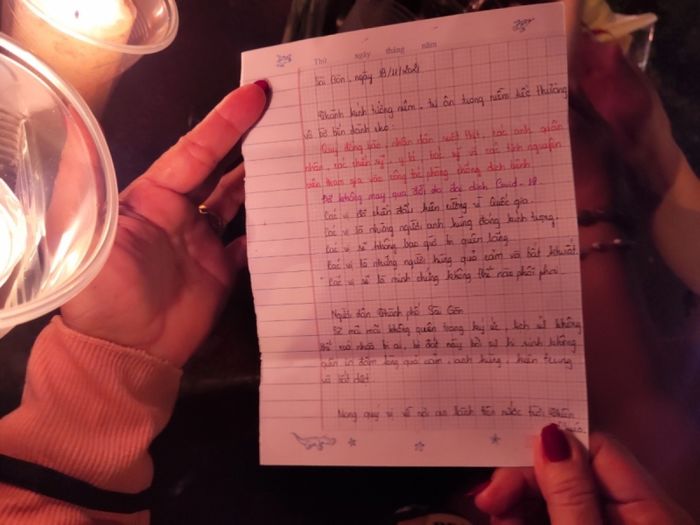 Thứ ngày tháng năm
Sài Gòn, ngày 18/11/2021
Thành kính tưởng niệm, tri ân trọng niềm tiếc thương
và bờ bến dành cho:
Quý đồng bào, nhân dân nước Việt, các anh quân
nhân, các chiến sỹ, y tá, bác sỹ và các tình nguyện
viên tham gia vào công tác phòng chống dịch bệnh.
Đã không may qua đời do đại dịch Covid-19
Các vị đã chiến đấu kiên cường vì Quốc gia.
Các vị là những người anh hùng đáng kính trọng.
Các vị sẽ không bao giờ bị quên lãng
Các vị là những người hùng quả cảm và bất khuất
Các vị sẽ là minh chứng không thể nào phôi phai.
Người dân Thành phố Sài Gòn
Sẽ mãi mãi không quên trong ký ức, lịch sử không
thể xoá nhoà bi ai, bi đát này bởi sự hi sinh không
quản là tấm lòng quả cảm, anh hùng, kiên trung
và bất diệt
Mong quý vị về nơi an lành trên nước trời Thiên